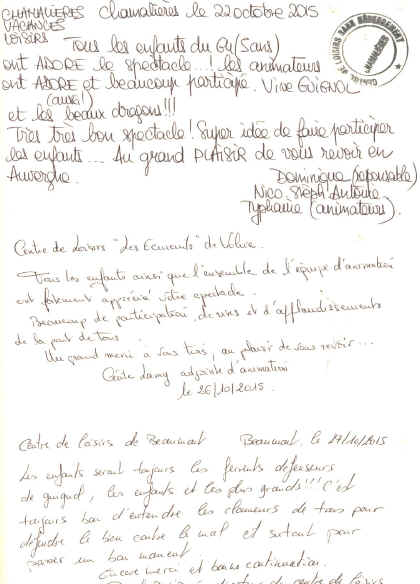 CHAMALIÈRES
VACANCES
LOISIRS
Chamalières le 22 octobre 2015
Tous les enfants du G4 (5ans)
ont ADORÉ le spectacle...! les animateurs
ont ADORÉ et beaucoup participé. Vive GUIGNOL
(aussi)
et les beaux dragons!!!
Très très bon spectacle! Super idée de faire participer
les enfants... Au grand PLAISIR de vous revoir en
Auvergne.
Dominique (responsable)
Nico. Steph. Antoine
Typhaine (animateurs).
Centre de Loisirs "Les Eléments" de Volvic.
Tous les enfants ainsi que l'ensemble de l'équipe d'animation
ont fortement apprécié votre spectacle.
Beaucoup de participation, de rires et d'applaudissements
de la part de tous.
Un grand merci à vous tous, au plaisir de vous revoir...
adjointe d'animation
le 26/10/2015.
Centre de loisirs de Beaumont Beaumont, le 27/10/2015
Les enfants seront toujours les fervents défenseurs
de guignol, les enfants et les plus grands!!! C'est
toujours bon d'entendre les clameurs de tous pour
défendre le bien contre le mal et surtout pour
passer un bon moment.
Encore merci et bonne continuation.